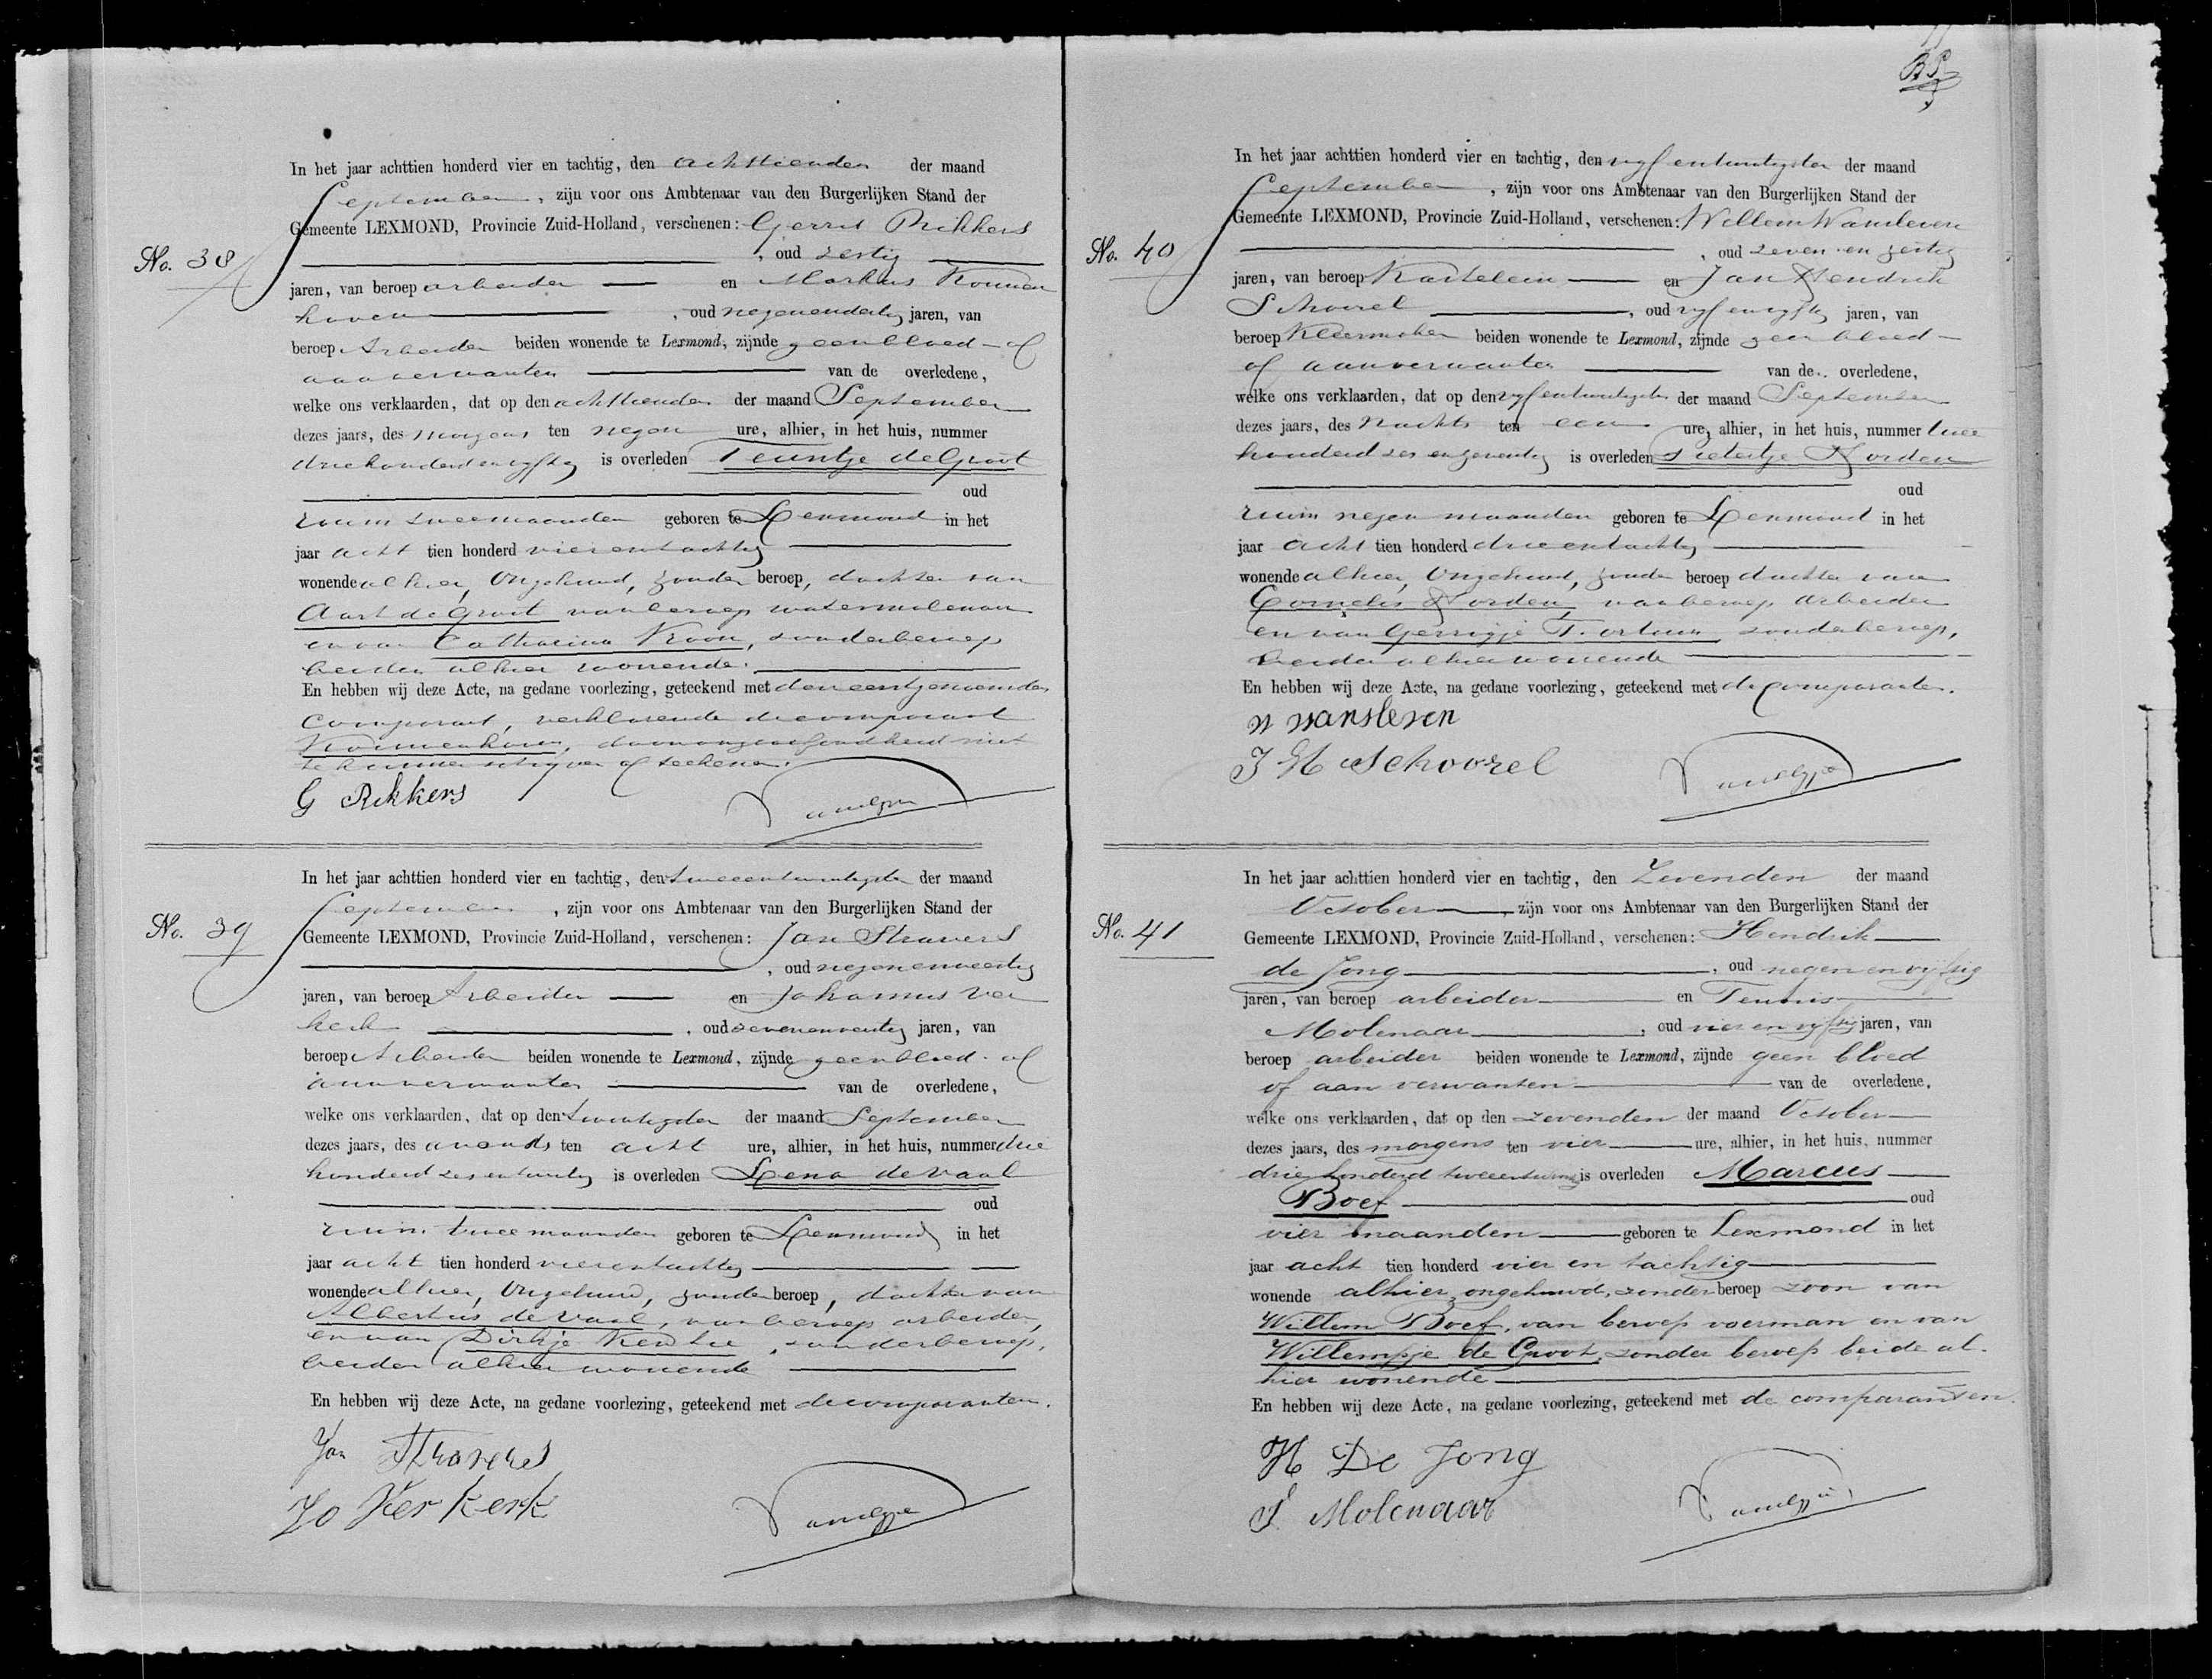 In het jaar achttien honderd vier en tachtig, den achttienden der maand
September, zijn voor ons Ambtenaar van den Burgerlijken Stand der
Gemeente LEXMOND, Provincie Zuid-Holland, verschenen: Gerrit Rikkers
No. 38
, oud zestig
jaren, van beroep arbeider en Markus Kouwen
hoven, oud negenendertig jaren, van
beroep Arbeider beiden wonende te Lexmond, zijnde geen bloed- of
aanverwanten van de overledene,
welke ons verklaarden, dat op den achttienden der maand September
dezes jaars, des morgens ten negen ure, alhier, in het huis, nummer
driehonderd en vyftig is overleden Teuntje de Groot
oud
ruim twee maanden geboren te Lexmond in het
jaar acht tien honderd vierentachtig
wonende alhier, Ongehuwd, zonder beroep, dochter van
Aart de Groot van beroep watermolenaar
en van Catharina Kroon, zonder beroep
beiden alhier wonende.
En hebben wij deze Acte, na gedane voorlezing, geteekend met den eerstgenoemden
Comparant, verklarende de comparant
Kouwenhoven, door ongeoefendheid niet
te kunnen schryven of teekenen.
G Rikkers
In het jaar achttien honderd vier en tachtig, den tweeentwintigsten der maand
September, zijn voor ons Ambtenaar van den Burgerlijken Stand der
No. 39
Gemeente LEXMOND, Provincie Zuid-Holland, verschenen: Jan Stravers
, oud negenenveertig
jaren, van beroep Arbeider en Johannes Ver
kerk, oud zevenenveertig jaren, van
beroep Arbeider beiden wonende te Lexmond, zijnde geen bloed- of
aanverwanten van de overledene,
welke ons verklaarden, dat op den twintigsten der maand September
dezes jaars, des avonds ten acht ure, alhier, in het huis, nummer drie
honderd zes en twintig is overleden Lena de Vaal
oud
ruim twee maanden geboren te Lexmond in het
jaar acht tien honderd vierentachtig
wonende alhier, Ongehuwd, zonder beroep, dochter van
Albertus de Vaal, van beroep arbeider,
en van Dirkje, zonder beroep,
beiden alhier wonende
En hebben wij deze Acte, na gedane voorlezing, geteekend met de comparanten.
Jan Stravers
Jo Verkerk
In het jaar achttien honderd vier en tachtig, den vyf entwintigsten der maand
September, zijn voor ons Ambtenaar van den Burgerlijken Stand der
Gemeente LEXMOND, Provincie Zuid-Holland, verschenen: Willem Wansleven
No. 40
, oud zeven en zestig
jaren, van beroep Kastelein en Jan Hendrik
Schoorel, oud vyf en vyftig jaren, van
beroep Kleermaker beiden wonende te Lexmond, zijnde geen bloed-
of aanverwanten van de overledene,
welke ons verklaarden, dat op den vyf entwintigsten der maand September
dezes jaars, des Nachts ten een ure, alhier, in het huis, nummer twee
honderd zes en zeventig is overleden Pietertje Norden
oud
ruim negen maanden geboren te Lexmond in het
jaar acht tien honderd drie entachtig
wonende alhier, Ongehuwd, zonder beroep dochter van
Cornelis Norden, van beroep Arbeider
en van Gerrigje Fortuin zonder beroep,
beiden alhier wonende
En hebben wij deze Acte, na gedane voorlezing, geteekend met de comparanten.
W Wansleven
J H Schoorel
In het jaar achttien honderd vier en tachtig, den Zevenden der maand
October, zijn voor ons Ambtenaar van den Burgerlijken Stand der
No. 41
Gemeente LEXMOND, Provincie Zuid-Holland, verschenen: Hendrik
de Jong, oud negen en vijftig
jaren, van beroep arbeider en Teunis
Molenaar, oud vier en vijftig jaren, van
beroep arbeider beiden wonende te Lexmond, zijnde geen bloed
of aan verwanten van de overledene,
welke ons verklaarden, dat op den zevenden der maand October
dezes jaars, des morgens ten vier ure, alhier, in het huis, nummer
drie honderd is overleden Marcus
Boef oud
vier maanden geboren te Lexmond in het
jaar acht tien honderd vier en tachtig
wonende alhier, ongehuwd, zonder beroep zoon van
Willem Boef, van beroep voerman en van
Willempje de Groot, zonder beroep beide al-
hier wonende
En hebben wij deze Acte, na gedane voorlezing, geteekend met de comparanten.
H De Jong
T. Molenaar